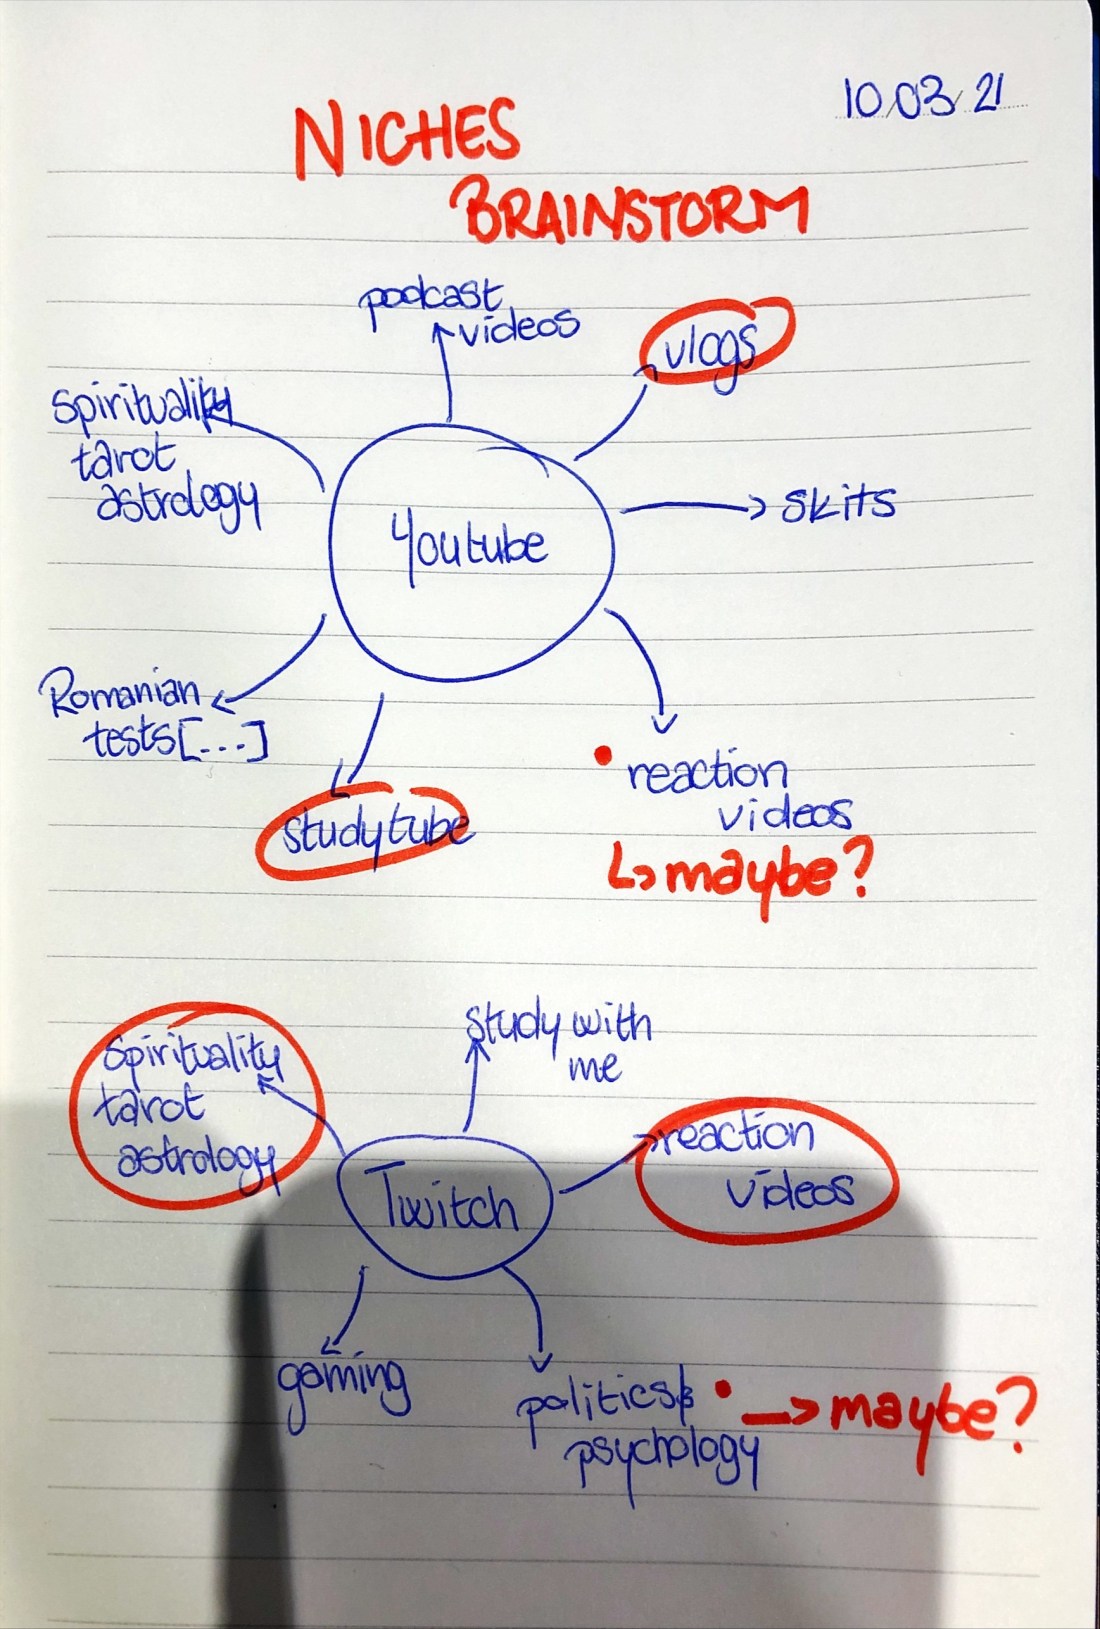 10/03/21
NICHES
BRAINSTORM
podcast
videos
vlogs
spirituality
tarot
astrology
skits
Youtube
Romanian
tests[...]
studytube
reaction
videos
↳ maybe?
study with
me
spirituality
tarot
astrology
reaction
videos
Twitch
gaming
politics & • → maybe?
psychology